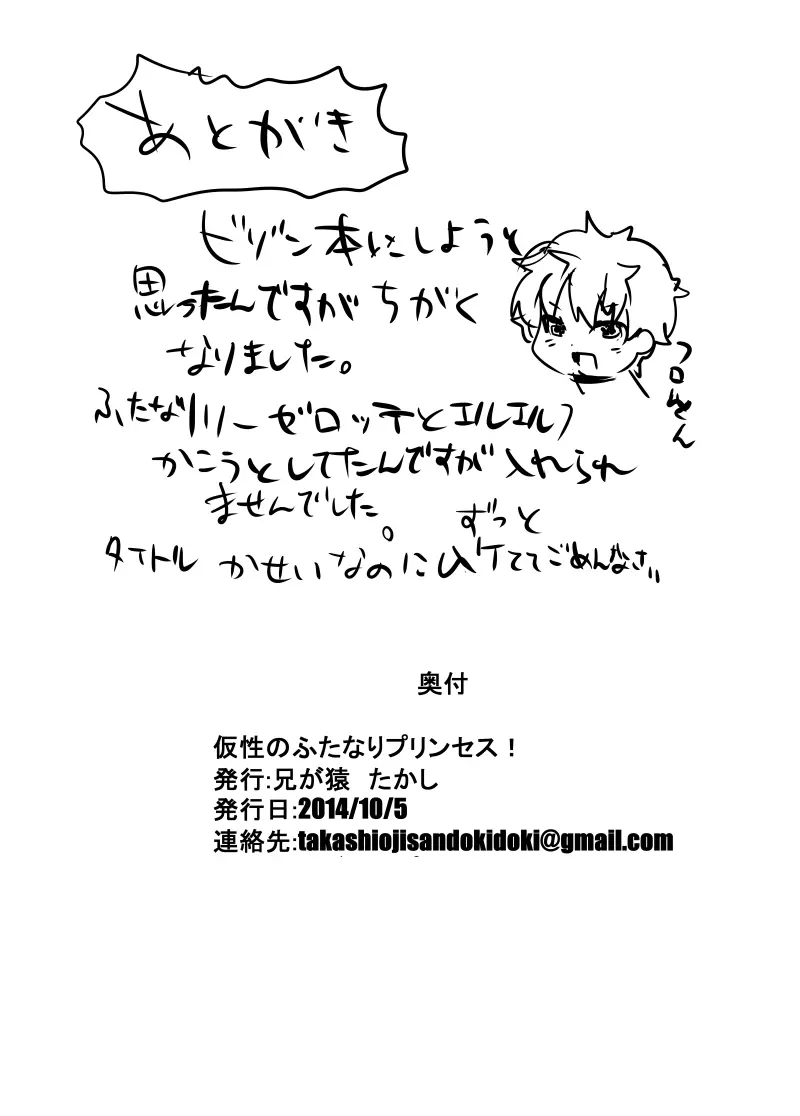 あとがき
ビゾン本にしようと
思ったんですがちがく
なりました。
ふたなりリーゼロッテとエルエルフ
かこうとしてたんですが入れられ
ませんでした。
ずっと
タイトル かせいなのにムケててごめんなさい
奥付
仮性のふたなりプリンセス！
発行:兄が猿　たかし
発行日:2014/10/5
連絡先:takashiojisandokidoki@gmail.com